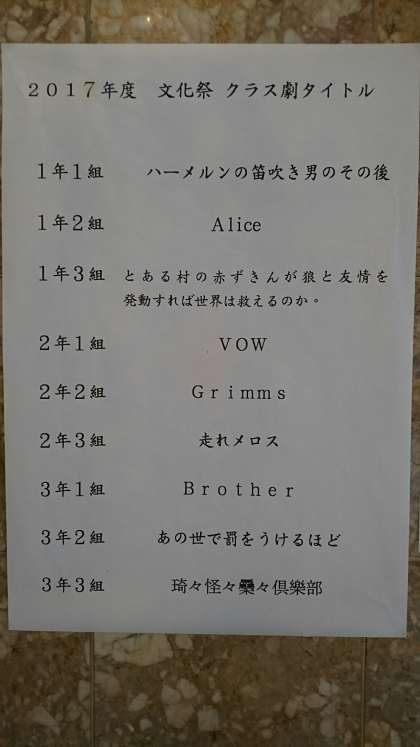 2017年度　文化祭 クラス劇タイトル
1年1組　ハーメルンの笛吹き男のその後
1年2組　Alice
1年3組　とある村の赤ずきんが狼と友情を
発動すれば世界は救えるのか。
2年1組　VOW
2年2組　Grimms
2年3組　走れメロス
3年1組　Brother
3年2組　あの世で罰をうけるほど
3年3組　琦々怪々々倶樂部